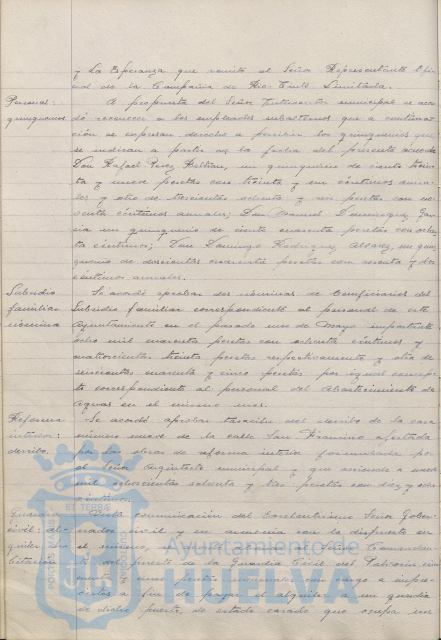 y La Esperanza que remite el Señor Representante Ofi-
cial de la Compañia de Rio-Tinto Limitada.
Personal: quinquenios
A propuesta del Señor Interventor municipal se acor-
dó reconocer a los empleados subalternos que a continua-
ción se expresan derecho a percibir los quinquenios que
se indican a partir de la fecha del presente acuerdo
Don Rafael Perez Beltran, un quinquenio de ciento trein-
ta y nueve pesetas con treinta y un céntimos anua-
les y otro de trescientas ochenta y seis pesetas con no-
venta céntimos anuales; Don Manuel Dominguez Gar-
cia un quinquenio de ciento cuarenta pesetas con ochen-
ta céntimos; Don Domingo Rodriguez Alvarez, un quin-
quenio de doscientas cuarenta pesetas con sesenta y dos
céntimos anuales.
Subsidio familiar: nómina
Se acordó aprobar las nóminas de beneficiarios del
Subsidio familiar correspondiente al personal de este
Ayuntamiento en el pasado mes de Mayo importante
ocho mil cuarenta pesetas con ochenta céntimos y
cuatrocientas treinta pesetas respectivamente y otra de
seiscientas cuarenta y cinco pesetas por igual concep-
to correspondiente al personal del Abastecimiento de
Aguas en el mismo mes.
Reforma interior: derribo.
Se acordó aprobar tasación del derribo de la casa
número nueve de la calle San Francisco afectada
por las obras de reforma interior formulada por
el Señor Arquitecto municipal y que asciende a nueve
mil ochocientas setenta y tres pesetas con diez y ocho
céntimos.
Guardia civil: al-
quiler
Vista comunicación del Excelentísimo Señor Gober-
nador civil y en armonia con lo dispuesto en
el mismo, Señor Comandan-
te del puesto de la Guardia Civil del
cinco pesetas mensuales con cargo a impre-
vistos a fin de pagar el alquiler a un guardia
de dicho puesto de estado casado que ocupa un
Ayuntamiento de
HUELVA